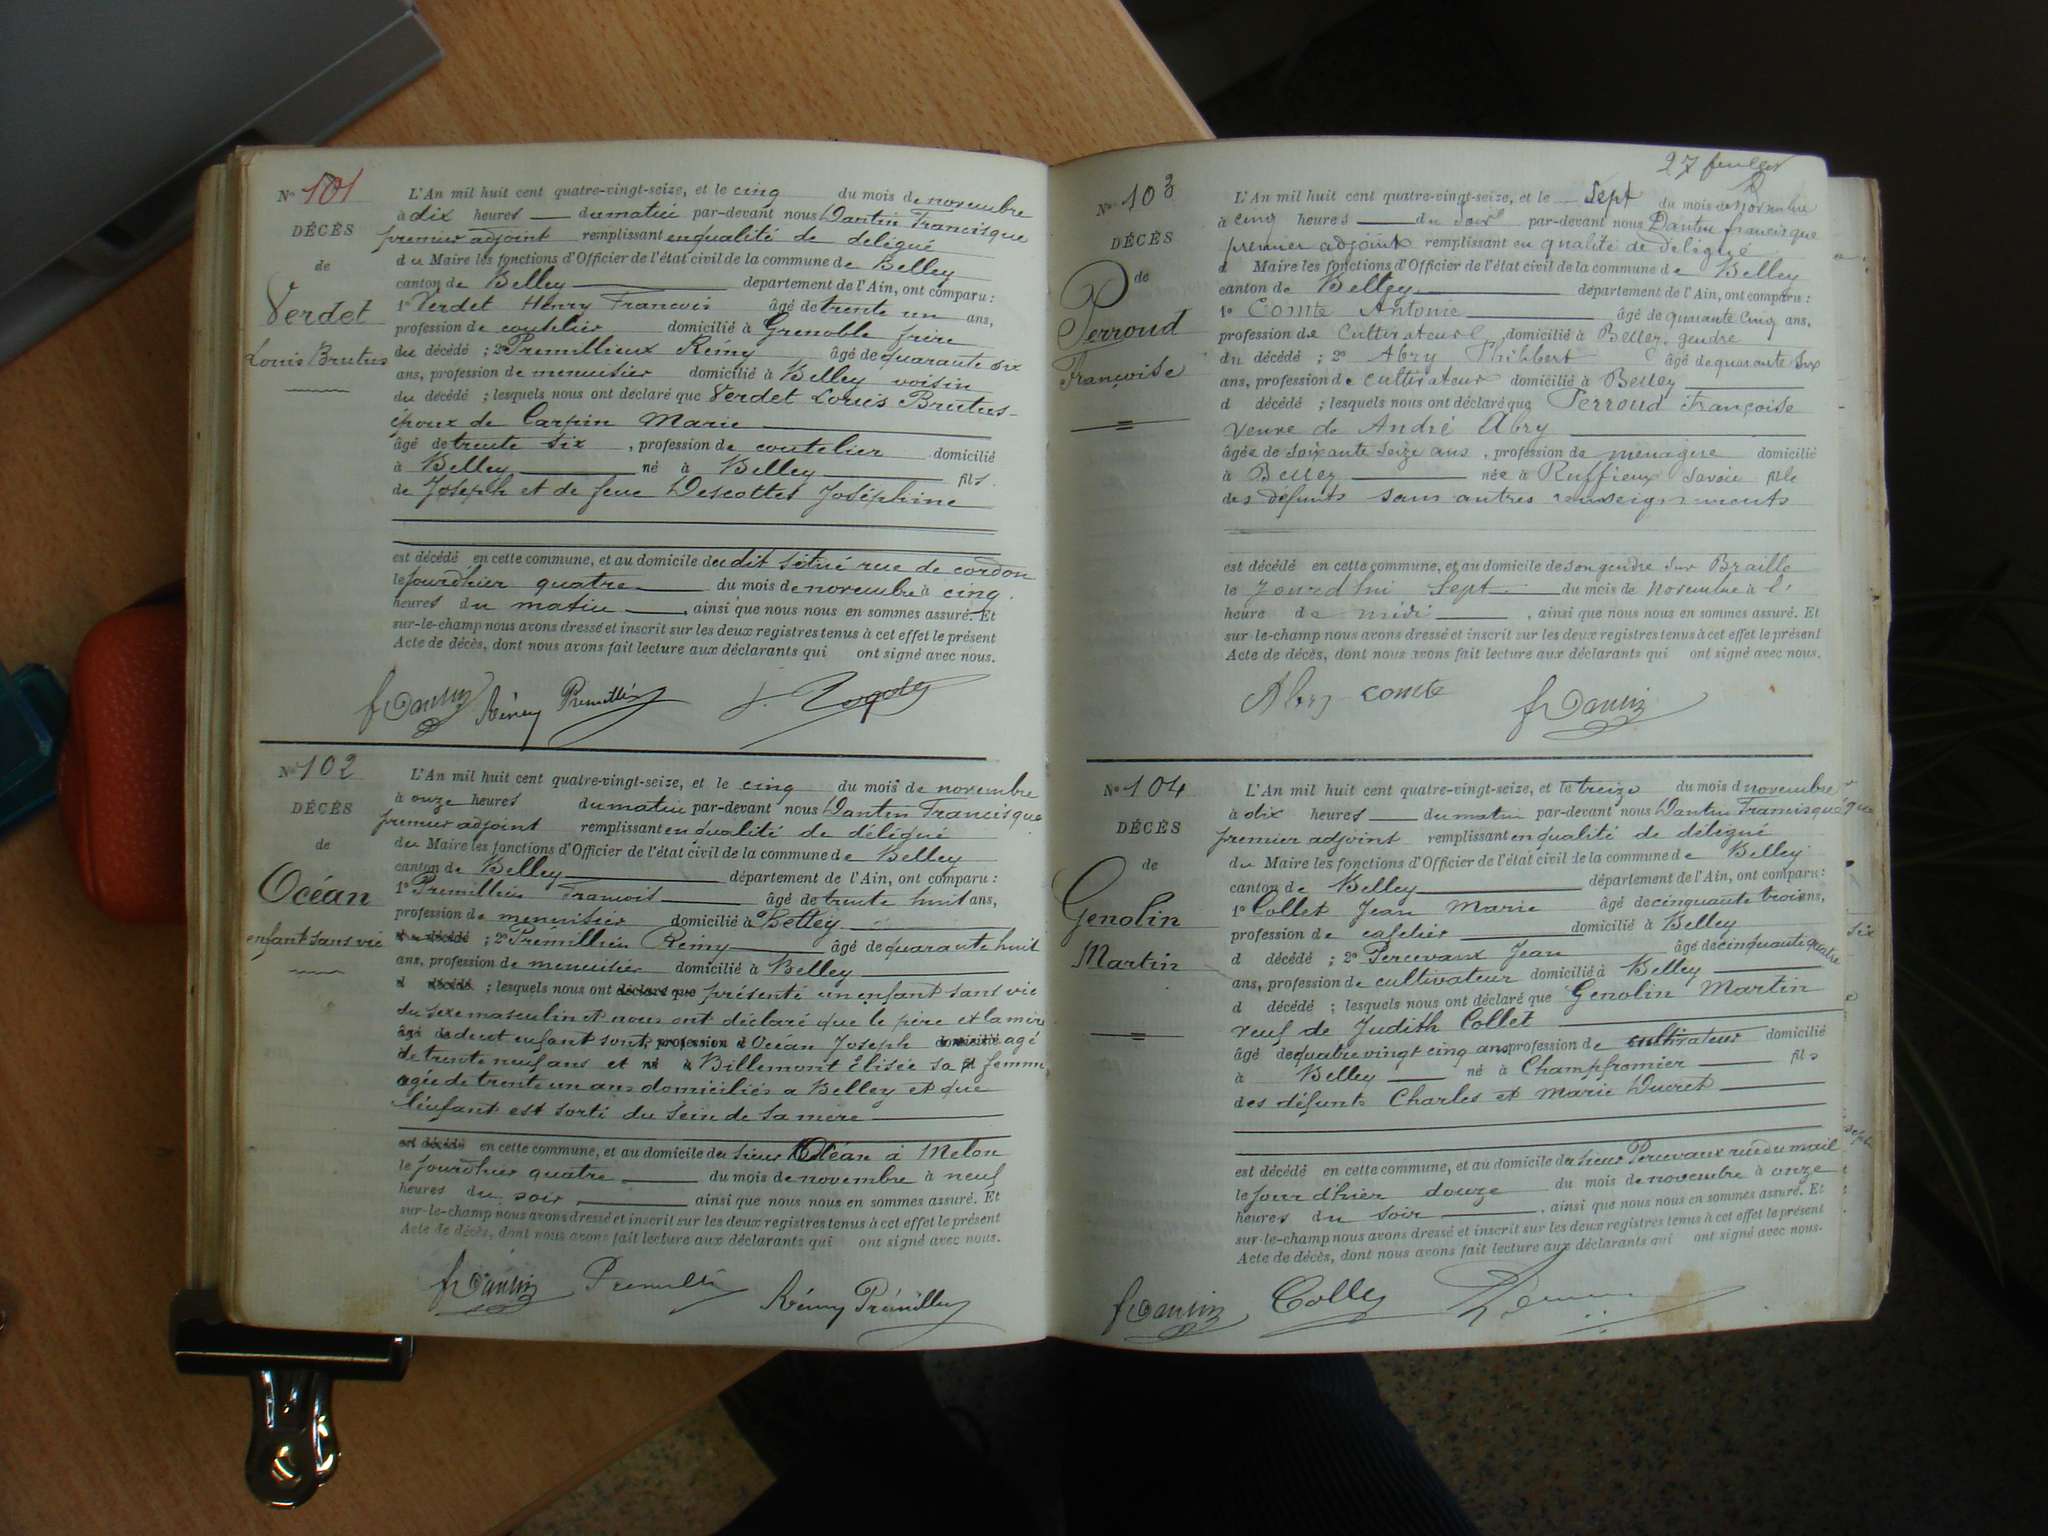 N° 101
DÉCÈS
de
Verdet
Louis Brutus
L'An mil huit cent quatre-vingt-seize, et le cinq du mois de novembre
à dix heures du matin par-devant nous Dantin Francisque
premier adjoint remplissant en qualité de délégué
du Maire les fonctions d'Officier de l'état civil de la commune de Belley
canton de Belley département de l'Ain, ont comparu :
1° Verdet Henry François âgé de trente un ans,
profession de coutelier domicilié à Grenoble frère
du décédé ; 2° Premillieux Rémy âgé de quarante six
ans, profession de menuisier domicilié à Belley voisin
du décédé ; lesquels nous ont déclaré que Verdet Louis Brutus
époux de Carpin Marie
âgé de trente six , profession de coutelier domicilié
à Belley né à Belley fils
de Joseph et de feue Descottes Joséphine
est décédé en cette commune, et au domicile du dit situé rue de cordon
le jourd'hier quatre du mois de novembre à cinq
heures du matin , ainsi que nous nous en sommes assuré. Et
sur-le-champ nous avons dressé et inscrit sur les deux registres tenus à cet effet le présent
Acte de décès, dont nous avons fait lecture aux déclarants qui ont signé avec nous.
f Dantin Rémy
N° 102
DÉCÈS
de
Océan
enfant sans vie
L'An mil huit cent quatre-vingt-seize, et le cinq du mois de novembre
à onze heures du matin par-devant nous Dantin Francisque
premier adjoint remplissant en qualité de délégué
du Maire les fonctions d'Officier de l'état civil de la commune de Belley
canton de Belley département de l'Ain, ont comparu :
1° Premillieu François âgé de trente huit ans,
profession de menuisier domicilié à Belley
d décédé ; 2° Prémillieu Rémy âgé de quarante huit
ans, profession de menuisier domicilié à Belley
d décédé ; lesquels nous ont déclaré que présenté un enfant sans vie
du sexe masculin et nous ont déclaré que le père et la mère
âgé de du cet enfant sont profession d Océan Joseph domicilié agé
de trente neuf ans et né à Billemont Élisée sa femme
agée de trente un ans domiciliés a Belley et que
l'enfant est sorti du sein de sa mère
est décédé en cette commune, et au domicile du sieur Océan à Melon
le jourd'hier quatre du mois de novembre à neuf
heures du soir ainsi que nous nous en sommes assuré. Et
sur-le-champ nous avons dressé et inscrit sur les deux registres tenus à cet effet le présent
Acte de décès, dont nous avons fait lecture aux déclarants qui ont signé avec nous.
f Dantin Rémy
27
N° 103
DÉCÈS
de
Perroud
Françoise
L'An mil huit cent quatre-vingt-seize, et le sept du mois de novembre
à cinq heures du soir par-devant nous Dantin francisque
premier adjoint remplissant en qualité de délégué
d Maire les fonctions d'Officier de l'état civil de la commune de Belley
canton de Belley département de l'Ain, ont comparu :
1° Comte Antonie âgé de quarante cinq ans,
profession de cultivateur domicilié à Belley gendre
du décédé ; 2° Abry Philibert âgé de quarante six
ans, profession de cultivateur domicilié à Belley
d décédé ; lesquels nous ont déclaré que Perroud Françoise
veuve de André Abry
âgée de soixante seize ans , profession de ménagère domicilié
à Belley née à Ruffieux Savoie fille
des défunts sans autres renseignements
est décédé en cette commune, et au domicile de son gendre sur Braille
le jourd'hui sept du mois de novembre à l'
heure de midi , ainsi que nous nous en sommes assuré. Et
sur-le-champ nous avons dressé et inscrit sur les deux registres tenus à cet effet le présent
Acte de décès, dont nous avons fait lecture aux déclarants qui ont signé avec nous.
Abry comte f Dantin
N° 104
DÉCÈS
de
Genolin
Martin
L'An mil huit cent quatre-vingt-seize, et le treize du mois d novembre
à dix heures du matin par-devant nous Dantin Francisque
premier adjoint remplissant en qualité de délégué
du Maire les fonctions d'Officier de l'état civil de la commune de Belley
canton de Belley département de l'Ain, ont comparu :
1° Collet Jean Marie âgé de cinquante trois ans,
profession de cafetier domicilié à Belley
d décédé ; 2° Percevaux Jean âgé de cinquante quatre
ans, profession de cultivateur domicilié à Belley
d décédé ; lesquels nous ont déclaré que Genolin Martin
veuf de Judith Collet
âgé de quatre vingt cinq ans profession de cultivateur domicilié
à Belley né à Champfromier fils
des défunts Charles et Marie Ducret
est décédé en cette commune, et au domicile du sieur Percevaux rue du mail
le jour d'hier douze du mois de novembre à onze
heures du soir , ainsi que nous nous en sommes assuré. Et
sur-le-champ nous avons dressé et inscrit sur les deux registres tenus à cet effet le présent
Acte de décès, dont nous avons fait lecture aux déclarants qui ont signé avec nous.
f Dantin